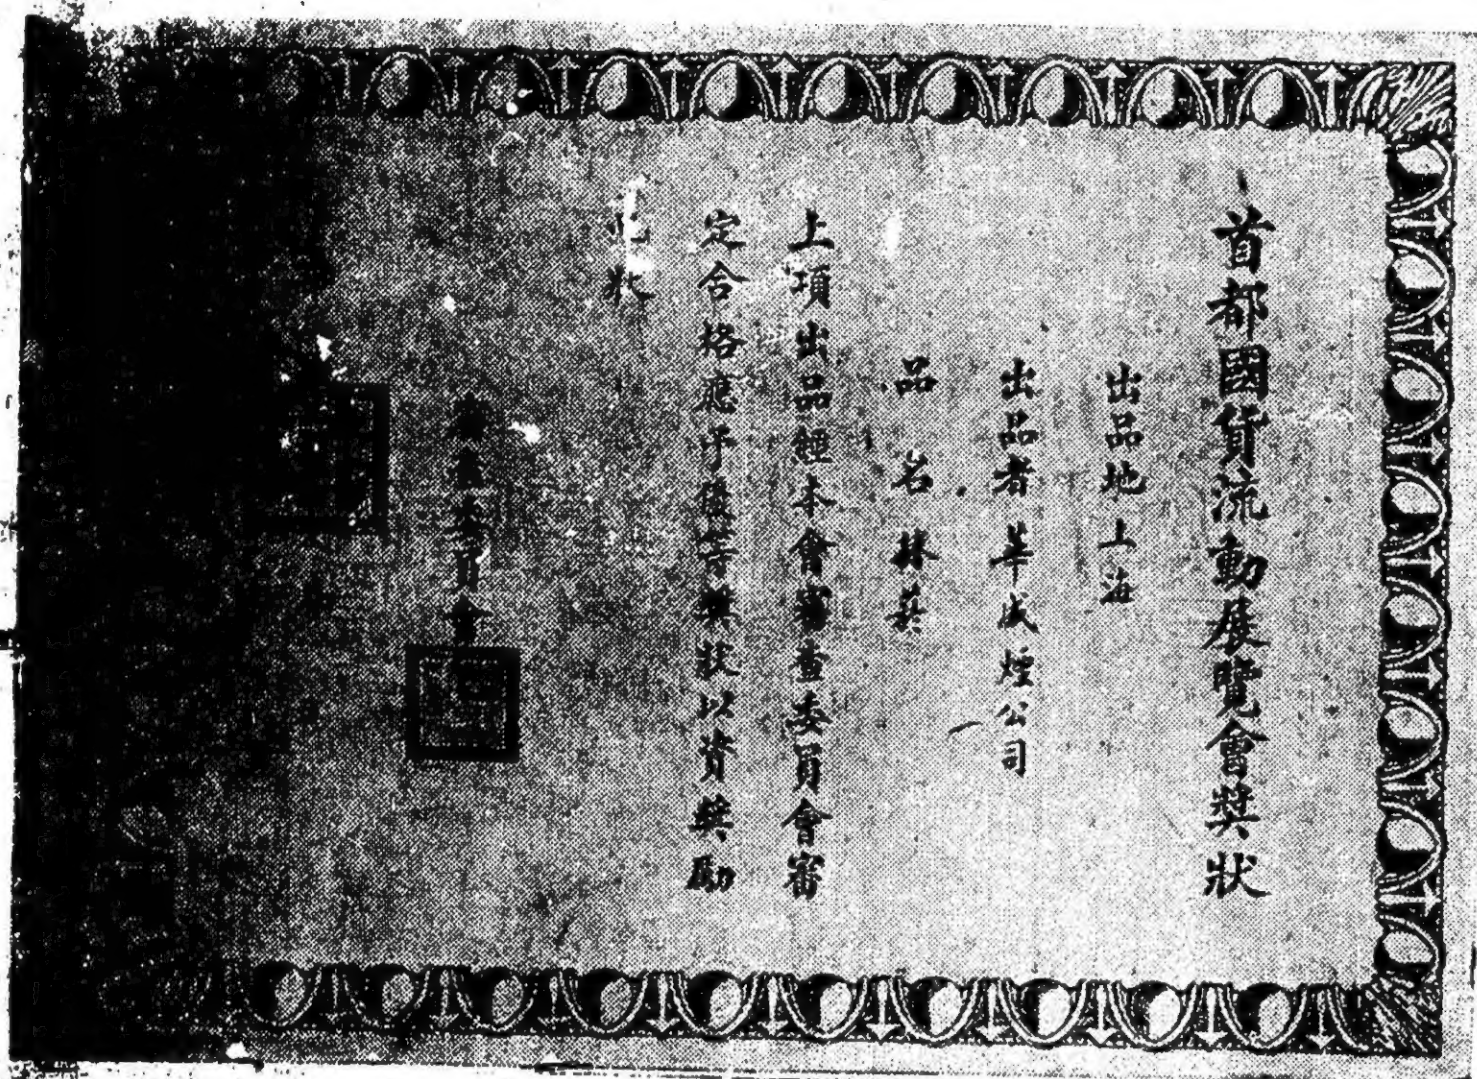 首都國貨流動展覽會獎狀
出品地上海
出品者華成煙公司
品名捲菸
上項出品經本會審查委員會審
定合格應予優等獎狀以資獎勵
此狀
委員會